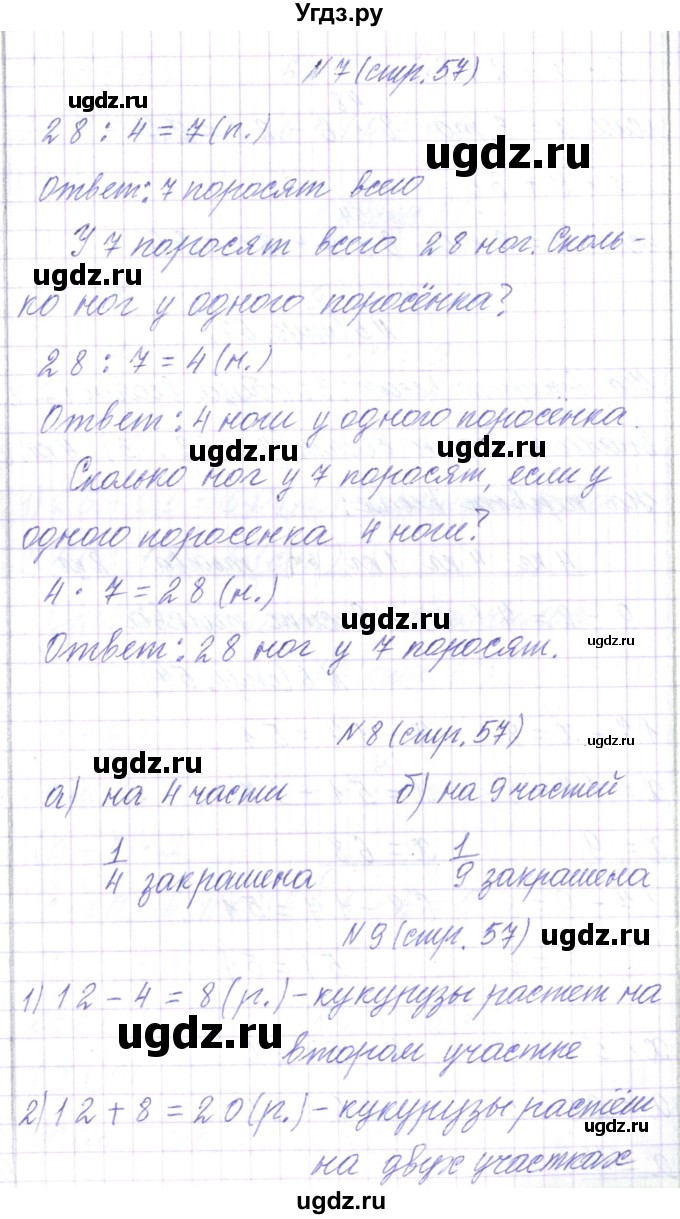 Угдз.ру
№7 (стр. 57)
ugdz.ru
28 : 4 = 7 (п.)
ugdz.ru
Ответ: 7 поросят всего
У 7 поросят всего 28 ног. Сколь-
ugdz.ru
ко ног у одного поросёнка?
28 : 7 = 4 (н.)
Ответ: 4 ноги у одного поросёнка.
ugdz.ru ugdz.ru
Сколько ног у 7 поросят, если у
одного поросенка 4 ноги?
4 · 7 = 28 (н.)
ugdz.ru
Ответ: 28 ног у 7 поросят.
ugdz.ru
№8 (стр. 57)
ugdz.ru
ugdz.ru
а) на 4 части б) на 9 частей
1/4 закрашена 1/9 закрашена
№9 (стр. 57)
ugdz.ru
1) 12 - 4 = 8 (р.) - кукурузы растет на
ugdz.ru
втором участке
2) 12 + 8 = 20 (р.) - кукурузы растёт
ugdz.ru
на двух участках
ugdz.ru